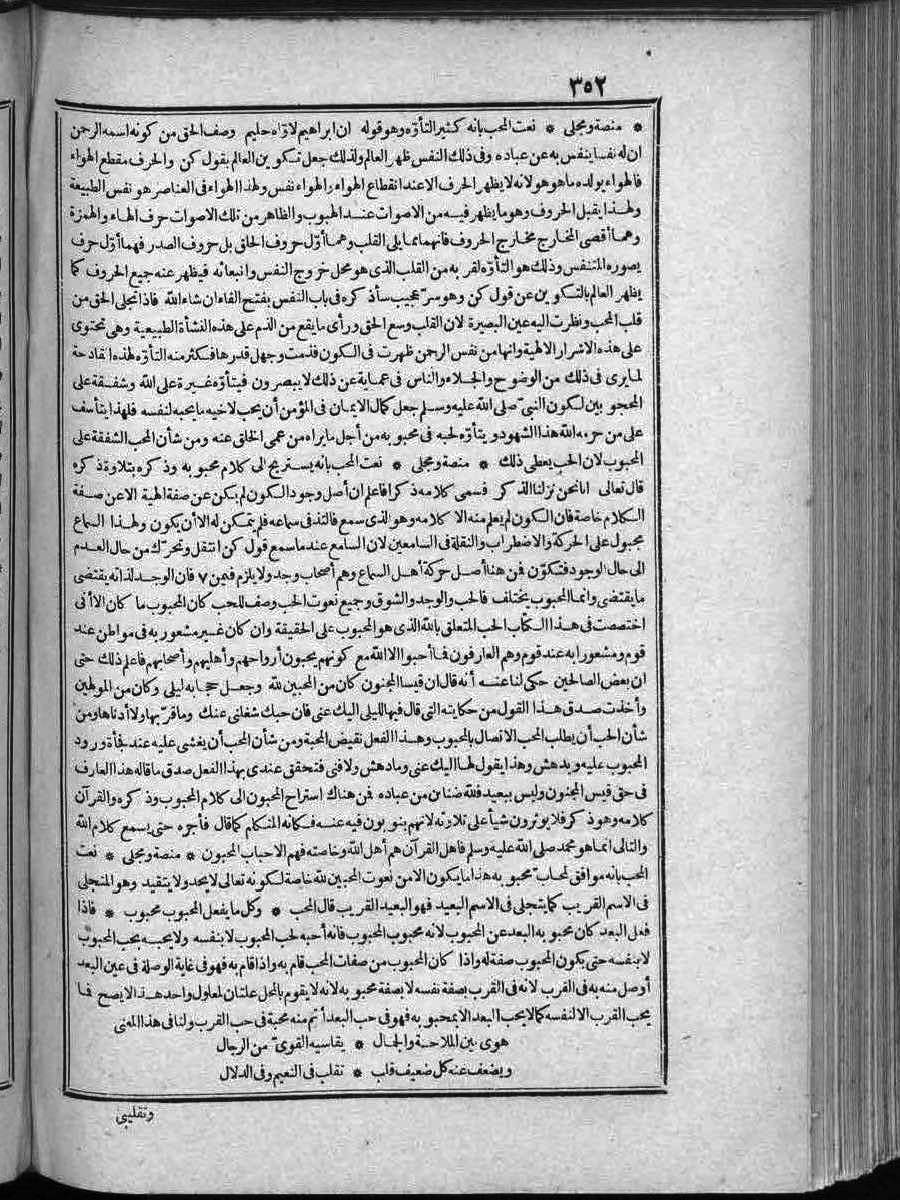 ٣٥٢
* منصة ومجلى * نعت المحب بانه كثير التأوّه وهو قوله ان ابراهيم لاوّاه حليم وصف الحق من كونه اسمه الرحمن
ان له نفسا ينفس به عن عباده وفى ذلك النفس ظهر العالم ولذلك جعل تكوين العالم بقول كن والحرف مقطع الهواء
فالهواء يولده ما هو هو لانه لا يظهر الحرف الا عند انقطاع الهواء والهواء نفس ولهذا الهواء فى العناصر هو نفس الطبيعة
ولهذا يقبل الحروف وهو ما يظهر فيه من الاصوات عند الهبوب والظاهر من تلك الاصوات حرف الهاء والهمزة
وهما أقصى المخارج مخارج الحروف فانهما مما يلى القلب وهما أوّل حروف الحلق بل حروف الصدر فهما أوّل حرف
يصوره المتنفس وذلك هو التأوّه لقربه من القلب الذى هو محل خروج النفس وانبعاثه فيظهر عنه جميع الحروف كما
يظهر العالم بالتكوين عن قول كن وهو سرّ عجيب سأذكره فى باب النفس بفتح الفاء ان شاء الله فاذا تجلى الحق من
قلب المحب ونظرت اليه عين البصيرة لان القلب وسع الحق ورأى ما يقع من الذم على هذه النشأة الطبيعية وهى تحتوى
على هذه الاسرار الالهية وانها من نفس الرحمن ظهرت فى الكون فذمت وجهل قدرها فكثر منه التأوّه لهذه القادحة
لما يرى فى ذلك من الوضوح والجلاء والناس فى عماية عن ذلك لا يبصرون فيتأوّه غيرة على الله وشفقة على
المحجوبين لكون النبىّ صلى الله عليه وسلم جعل كمال الايمان فى المؤمن أن يحب لاخيه ما يحبه لنفسه فلهذا يتأسف
على من حرمه الله هذا الشهود ويتأوّه لحبه فى محبوبه من أجل ما يراه من عمى الخلق عنه ومن شأن المحب الشفقة على
المحبوب لان الحب يعطى ذلك * منصة ومجلى * نعت المحب بانه يستريح الى كلام محبوبه وذكره بتلاوة ذكره
قال تعالى انا نحن نزلنا الذكر فسمى كلامه ذكرا فاعلم ان أصل وجود الكون لم يكن عن صفة الهية الا عن صفة
الكلام خاصة فان الكون لم يعلم منه الا كلامه وهو الذى سمع فالتذ فى سماعه فلم يتمكن له الا أن يكون ولهذا السماع
مجبول على الحركة والاضطراب والنقلة فى السامعين لان السامع عند ما سمع قول كن انتقل وتحرّك من حال العدم
الى حال الوجود فتكوّن فمن هنا أصل حركة أهل السماع وهم أصحاب وجد ولا يلزم فيمن ٧ فان الوجد لذاته يقتضى
ما يقتضى وانما المحبوب يختلف فالحب والوجد والشوق وجميع نعوت الحب وصف للحب كان المحبوب ما كان الا أنى
اختصصت فى هذا الكتاب الحب المتعلق بالله الذى هو المحبوب على الحقيقة وان كان غير مشعور به فى مواطن عند
قوم ومشعورا به عند قوم وهم العارفون فما أحبوا الا الله مع كونهم يحبون أرواحهم وأهليهم وأصحابهم فاعلم ذلك حتى
ان بعض الصالحين حكى لنا عنه أنه قال ان قيسا المجنون كان من المحبين لله وجعل حجابه ليلى وكان من المولهين
وأخذت صدق هذا القول من حكايته التى قال فيها لليلى اليك عنى فان حبك شغلنى عنك وما قرّبها ولا أدناها ومن
شأن الحب أن يطلب المحب الاتصال بالمحبوب وهذا الفعل نقيض المحبة ومن شأن المحب أن يغشى عليه عند فجأة ورود
المحبوب عليه ويدهش وهذا يقول لها اليك عنى وما دهش ولا فنى فتحقق عندى بهذا الفعل صدق ما قاله هذا العارف
فى حق قيس المجنون وليس ببعيد فلله ضنائن من عباده فمن هناك استراح المحبون الى كلام المحبوب وذكره والقرآن
كلامه وهو ذكر فلا يوثرون شيأ على تلاوته لانهم ينوبون فيه عنه فكأنه المتكلم كما قال فأجره حتى يسمع كلام الله
والتالى انما هو محمد صلى الله عليه وسلم فاهل القرآن هم أهل الله وخاصته فهم الاحباب المحبون * منصة ومجلى * نعت
المحب بانه موافق لمحاب محبوبه هذا ما يكون الا من نعوت المحبين لله خاصة لكونه تعالى لا يحد ولا يتقيد وهو المتجلى
فى الاسم القريب كما يتجلى فى الاسم البعيد فهو البعيد القريب قال المحب * وكل ما يفعل المحبوب محبوب * فاذا
فعل البعد كان محبوبه البعد عن المحبوب لانه محبوب المحبوب فانه أحبه لحب المحبوب لا بنفسه ولا يحبه بحب المحبوب
لا بنفسه حتى يكون المحبوب صفة له واذا كان المحبوب من صفات المحب قام به واذا قام به فهو فى غاية الوصلة فى عين البعد
أوصل منه به فى القرب لانه فى القرب بصفة نفسه لا بصفة محبوبه لانه لا يقوم بالمحل علتان لمعلول واحد هذا لا يصح فما
يحب القرب الا لنفسه كما لا يحب البعد الا بمحبوبه فهو فى حب البعد أتم منه محبة فى حب القرب ولنا فى هذا المعنى
هوى بين الملاحة والجمال * يقاسيه القوىّ من الرجال
ويضعف عنه كل ضعيف قلب * تقلب فى النعيم وفى الدلال
وتقليبى